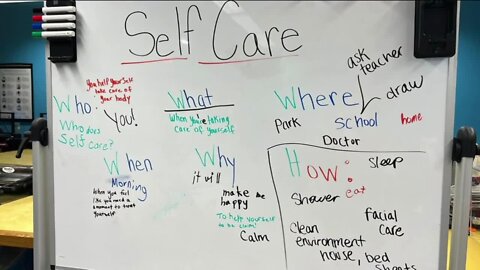 Self Care
Who
You help yourself
take care of
your body
Who does
Self care?
You!
What
When you're taking
care of yourself
Where
ask
teacher
draw
Park
School
home
Doctor
When
Morning
When you feel
like you need a
moment to treat
yourself
Why
it will
make me
happy
To help yourself
to be calm!
Calm
How:
Sleep
eat
Shower
facial
care
clean
environment
house, bed
sheets